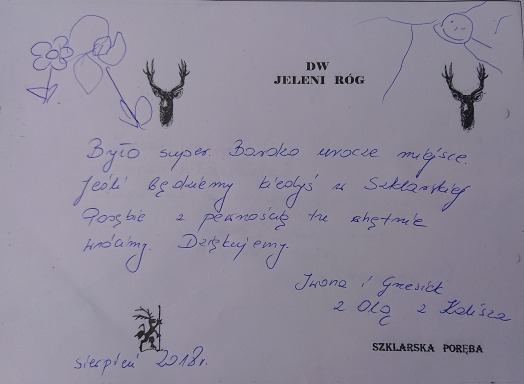 DW
JELENI RÓG
Było super. Bardzo urocze miejsce.
Jeśli będziemy kiedyś w Szklarskiej
Porębie z pewnością tu chętnie
wrócimy. Dziękujemy.
Iwona i Grzesiek
z Olą z Kalisza
SZKLARSKA PORĘBA
sierpień 2018r.